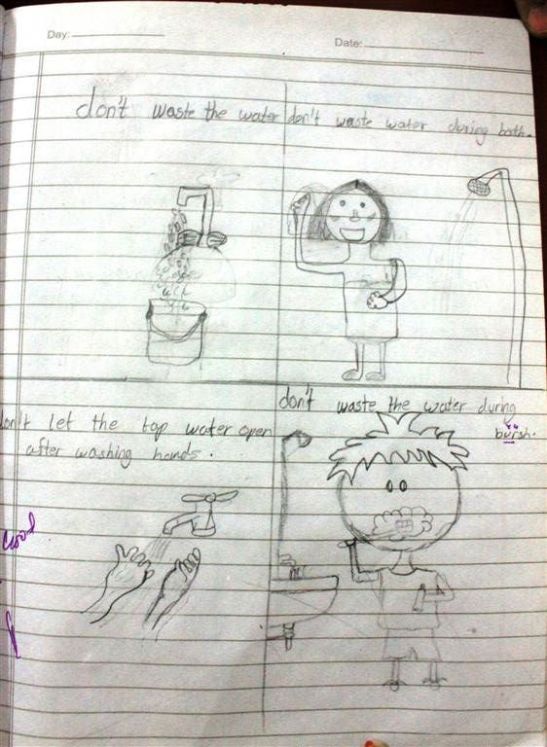 Day:
Date:
don't waste the water
don't waste water during bath.
don't let the top water open
after washing hands.
don't waste the water during
bursh.
Good